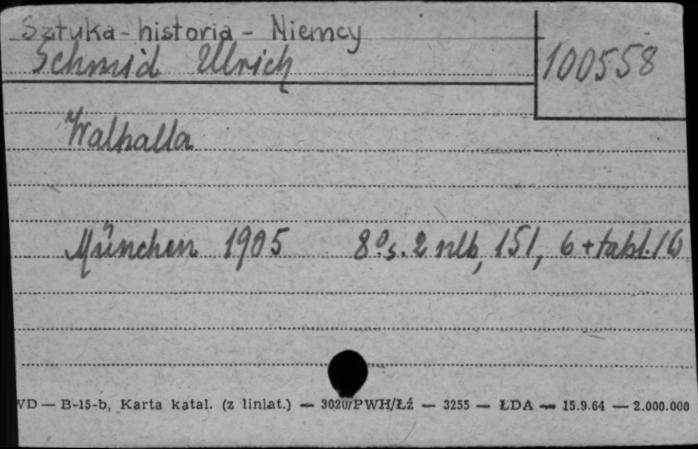 Sztuka - historia - Niemcy
Schmid Ullrich
100558
Walhalla
München 1905 8°s. 2 nlb, 151, 6 + tabl.
VD — B-15-b, Karta katal. (z liniat.) — 3020/PWH/Łź — 3255 — ŁDA — 15.9.64 — 2.000.000